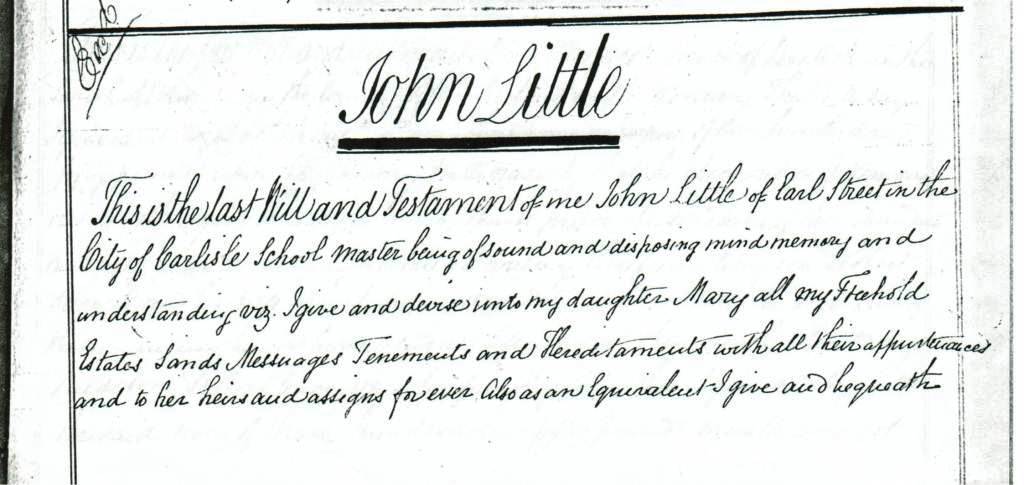 John Little
This is the last Will and Testament of me John Little of Earl Street in the
City of Carlisle School Master being of sound and disposing mind memory and
understanding viz. I give and devise unto my daughter Mary all my Freehold
Estates Lands Messuages Tenements and Hereditaments with all their appurtenances
and to her heirs and assigns for ever Also as an Equivalent I give and bequeath